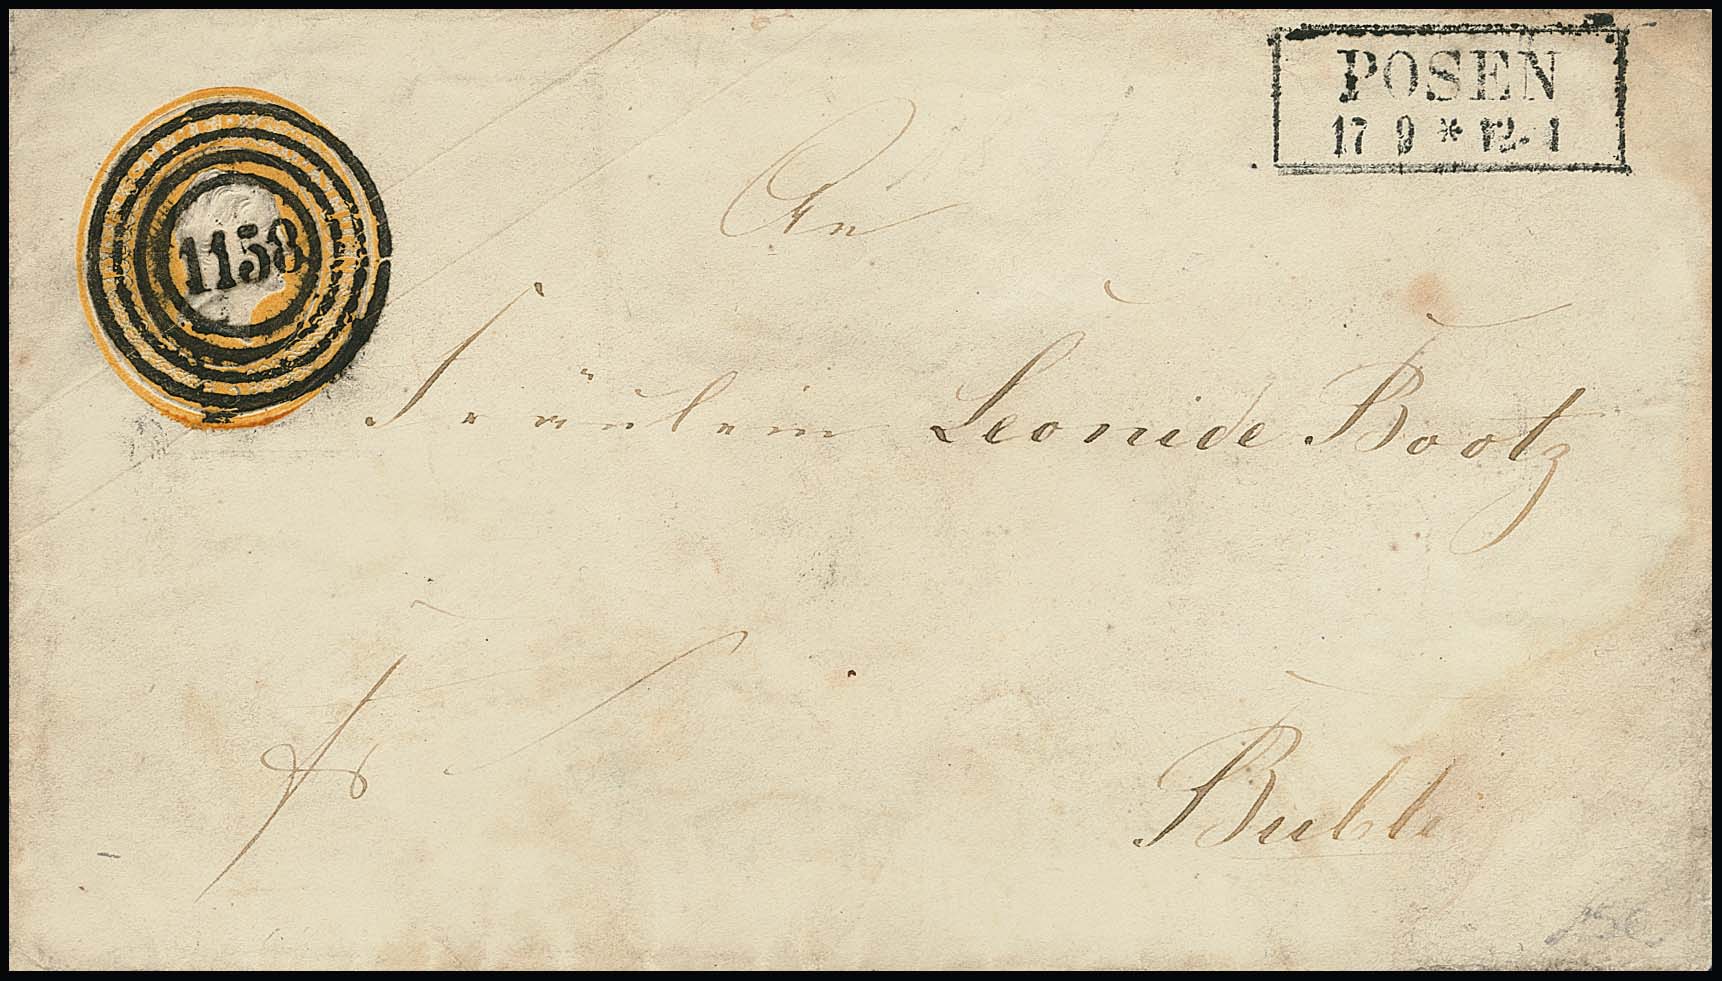 POSEN
17 9 * 12-1
1158
An
Fräulein Leonide Bootz
Bublitz